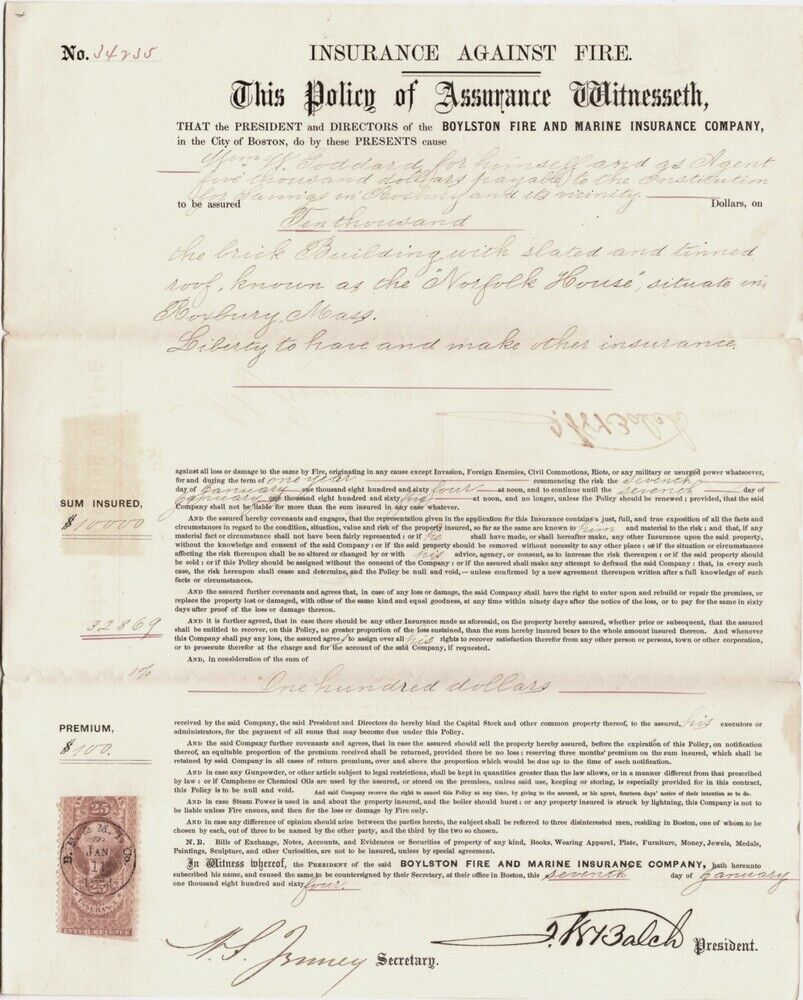 No. 34235
INSURANCE AGAINST FIRE.
This Policy of Assurance Witnesseth,
THAT the PRESIDENT and DIRECTORS of the BOYLSTON FIRE AND MARINE INSURANCE COMPANY,
in the City of BOSTON, do by these PRESENTS cause
Wm W. Goddard, for himself and as Agent
five thousand dollars payable to the Institution
for Savings in Roxbury and its vicinity
to be assured Dollars, on
Ten thousand
the brick Building with slated and tinned
roof, known as the "Norfolk House", situate in
Roxbury, Mass.
Liberty to have and make other insurance.
against all loss or damage to the same by Fire, originating in any cause except Invasion, Foreign Enemies, Civil Commotions, Riots, or any military or usurped power whatsoever,
for and during the term of one year commencing the risk the Seventh
day of January one thousand eight hundred and sixty four at noon, and to continue until the seventh day of
January one thousand eight hundred and sixty five at noon, and no longer, unless the Policy should be renewed; provided, that the said
Company shall not be liable for more than the sum insured in any case whatever.
SUM INSURED,
$ 10000
AND the assured hereby covenants and engages, that the representation given in the application for this Insurance contains a just, full, and true exposition of all the facts and
circumstances in regard to the condition, situation, value and risk of the property insured, so far as the same are known to him and material to the risk: and that, if any
material fact or circumstance shall not have been fairly represented: or if he shall have made, or shall hereafter make, any other Insurance upon the said property,
without the knowledge and consent of the said Company: or if the said property should be removed without necessity to any other place: or if the situation or circumstances
affecting the risk thereupon shall be so altered or changed by or with his advice, agency, or consent, as to increase the risk thereupon: or if the said property should
be sold: or if this Policy should be assigned without the consent of the Company: or if the assured shall make any attempt to defraud the said Company: that, in every such
case, the risk hereupon shall cease and determine, and the Policy be null and void,—unless confirmed by a new agreement thereupon written after a full knowledge of such
facts or circumstances.
AND the assured further covenants and agrees that, in case of any loss or damage, the said Company shall have the right to enter upon and rebuild or repair the premises, or
replace the property lost or damaged, with other of the same kind and equal goodness, at any time within ninety days after the notice of the loss, or to pay for the same in sixty
days after proof of the loss or damage thereon.
32869
AND it is further agreed, that in case there should be any other Insurance made as aforesaid, on the property hereby assured, whether prior or subsequent, that the assured
shall be entitled to recover, on this Policy, no greater proportion of the loss sustained, than the sum hereby insured bears to the whole amount insured thereon. And whenever
this Company shall pay any loss, the assured agrees to assign over all his rights to recover satisfaction therefor from any other person or persons, town or other corporation,
or to prosecute therefor at the charge and for the account of the said Company, if requested.
AND, in consideration of the sum of
1%
One hundred dollars
PREMIUM,
$ 100.
received by the said Company, the said President and Directors do hereby bind the Capital Stock and other common property thereof, to the assured, his executors or
administrators, for the payment of all sums that may become due under this Policy.
AND the said Company further covenants and agrees, that in case the assured should sell the property hereby assured, before the expiration of this Policy, on notification
thereof, an equitable proportion of the premium received shall be returned, provided there be no loss: reserving three months' premium on the sum insured, which shall be
retained by said Company in all cases of return premium, over and above the proportion which would be due up to the time of such notification.
AND in case any Gunpowder, or other article subject to legal restrictions, shall be kept in quantities greater than the law allows, or in a manner different from that prescribed
by law: or if Camphene or Chemical Oils are used by the assured, or stored on the premises, unless said use, keeping or storing, is especially provided for in this contract,
this Policy is to be null and void. And said Company reserve the right to cancel this Policy at any time, by giving to the assured, or his agent, fourteen days' notice of their intention so to do.
AND in case Steam Power is used in and about the property insured, and the boiler should burst: or any property insured is struck by lightning, this Company is not to
be liable unless Fire ensues, and then for the loss or damage by Fire only.
AND in case any difference of opinion should arise between the parties hereto, the subject shall be referred to three disinterested men, residing in Boston, one of whom to be
chosen by each, out of three to be named by the other party, and the third by the two so chosen.
N.B. Bills of Exchange, Notes, Accounts, and Evidences or Securities of property of any kind, Books, Wearing Apparel, Plate, Furniture, Money, Jewels, Medals,
Paintings, Sculpture, and other Curiosities, are not to be insured, unless by special agreement.
In Witness whereof, the PRESIDENT of the said BOYLSTON FIRE AND MARINE INSURANCE COMPANY, hath hereunto
subscribed his name, and caused the same to be countersigned by their Secretary, at their office in Boston, this seventh day of January
one thousand eight hundred and sixty four.
25
JAN
25
INSURANCE
INTER. REVENUE
Secretary.
J. W. Balch President.